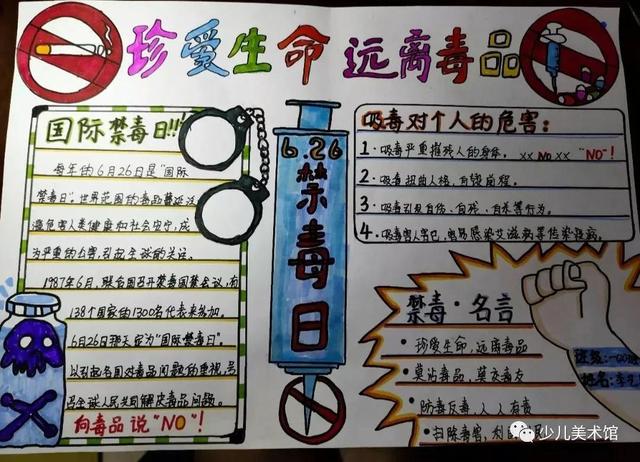 珍爱生命 远离毒品
国际禁毒日!!!
每年的6月26日是"国际
禁毒日"。世界范围的毒品蔓延泛
滥危害人类健康和社会安定,成
为严重的公害,引起全球的关注。
1987年6月,联合国召开禁毒国际会议,有
138个国家的1300名代表来参加。
6月26日那天定为"国际禁毒日"。
以引起各国对毒品问题的重视,号
召全球人民共同解决毒品问题。
向毒品说"NO"!
6.26
禁毒日
吸毒对个人的危害:
1·吸毒严重摧残人的身体。 xx NO xx "NO"!
2·吸毒扭曲人格,自毁前程。
3·吸毒引起自伤、自残、自杀等行为。
4·吸毒害人害己,也易感染艾滋病等传染疾病。
禁毒·名言
·珍爱生命,远离毒品
·莫沾毒品,莫交毒友
·防毒反毒,人人有责
·扫除毒害,利
班级:
姓名:李
少儿美术馆